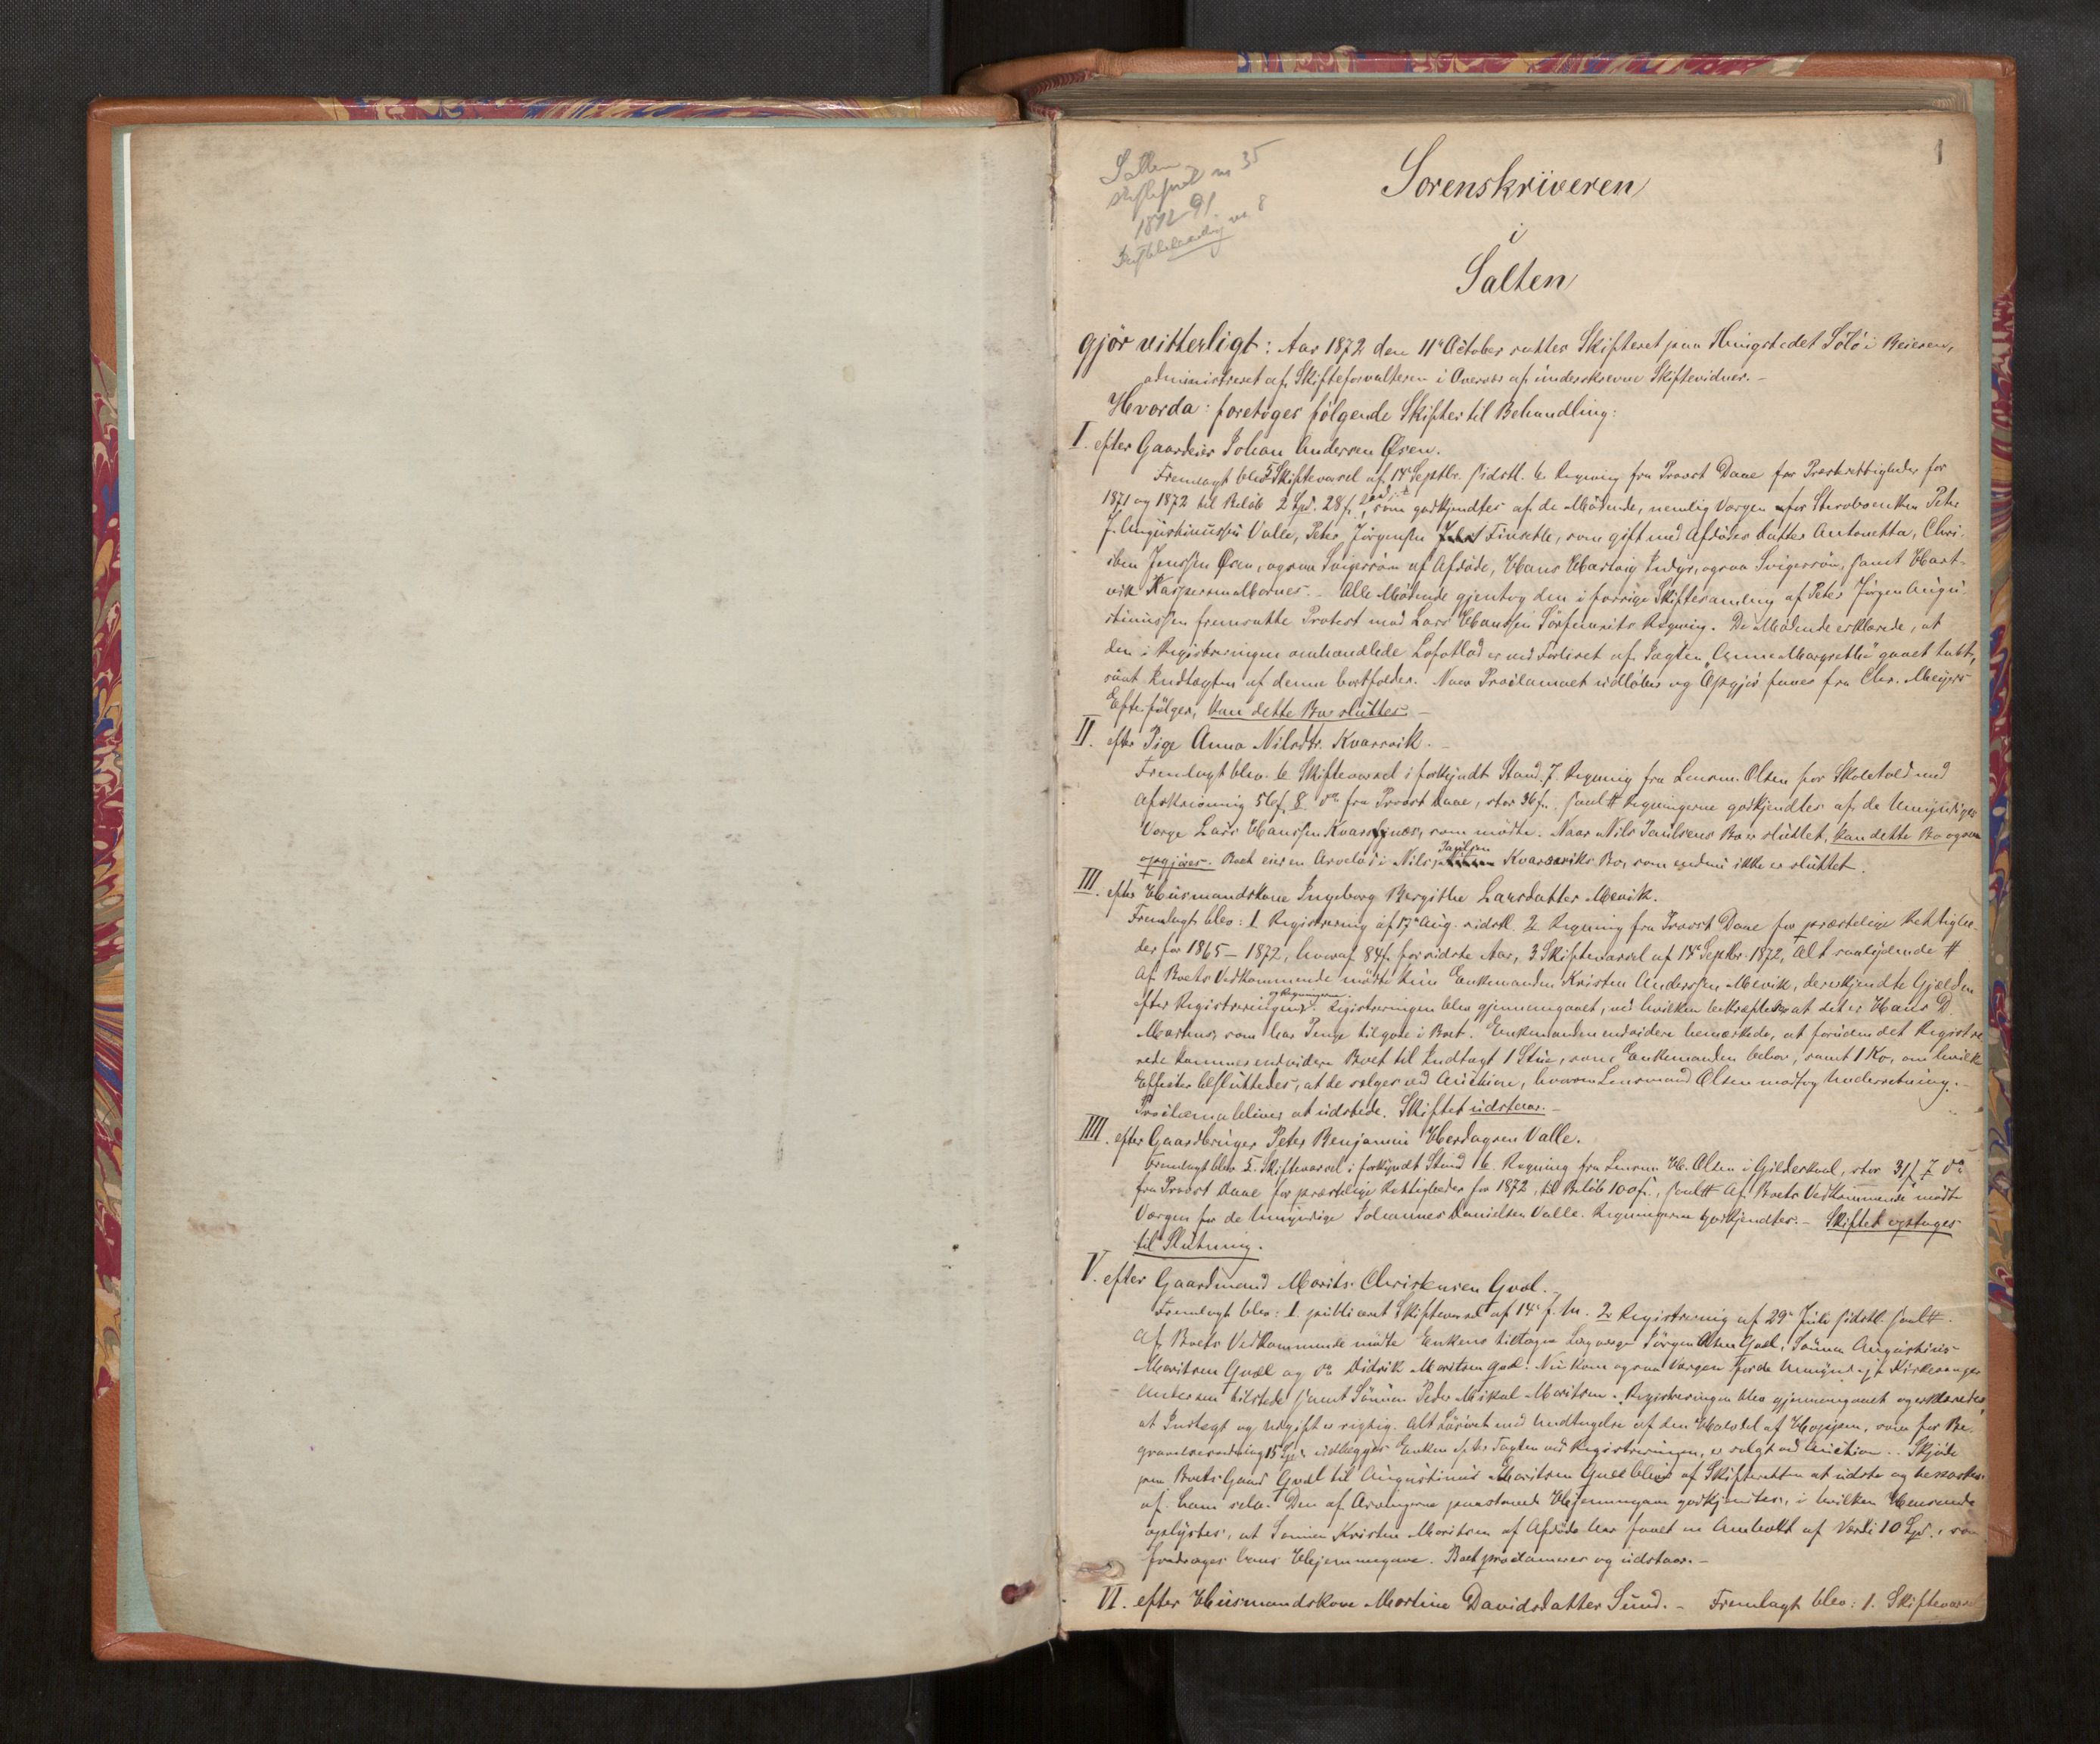 1
Salten
1872-91
Sorenskriveren
i
Salten
gjör vitterligt: Aar 1872 den 11te October sattes Skifteret paa Thingstedet Sölö i Beieren,
administreret af Skifteforvalteren i Overvær af underskrevne Skiftevidner. -
Hvorda: foretoges følgende Skifter til Behandling:
I. efter Gaardeier Johan Andersen Øsen.
Fremlagt blev 5 Skiftevarsel af 14de Septbr. sidstl. 6 Regning fra Provst Daae for Præsterettigheder for
1871 og 1872 til Beløb 2 Spd. 28 s., som godkjendtes af de Mødende, nemligVærgen for Stervboenken Peter
J. Augustinussen Valle, Peter Jørgensen Finsætle, som gift med Afdødes Datter Antonetta, Chri-
sten Jenssen Øsen, ogsaa Svigersøn af Afdøde, Hans Hartvig Indyr, ogsaa Svigersøn, samt Hart-
vik Kaspersen Mornes. - Alle Mødende gjentog den i forrige Skiftesamling af Peter Jørgen Augu-
stinussen fremsatte Protest mod Lars Hanssen Sörfuurits Regning. De Mødende erklærede, at
den i Registreringen omhandlede Lofotlod er ved Forliset af Jagten "Anne Margrethe" gaaet tabt,
saat Indtægten af denne bortfalder. Naar Proclamaet udløber og Opgjør faaes fra Chr. Meyers
Efterfølger, kan dette Bo sluttes. -
II. efter Pige Anna Nilsdtr. Kvarsvik. -
Fremlagt blev 6 Skiftevarsel i forkyndt Stand. 7. Regning fra Lensm. Olsen for Skoletold med
Afskrivning 56 s. 8. do fra Provst Daae, stor 36 s. saal# Regningerne godkjendtes af de Umyndiges
Værge Lars Hanssen Kvarsnæs, som mødte. Naar Nils Paulsens Bo er sluttet, kan dette Bo ogsaa
opgjøres. Boet eier en Arvelod i Nils Paulsen Kvarsviks Bo, som endnu ikke er sluttet.
III. efter Husmandskone Ingeborg Bergithe Larsdatter Mevik.
Fremlagt blev: 1 Registrering af 17de Aug. sidstl. 2 Regning fra Provst Daae for præstelige Rettighe-
der for 1865 - 1872, hvoraf 84 s. for sidste Aar, 3. Skiftevarsel af 14de Septbr. 1872, Alt saalydende #
Af Boets Vedkommende mødte kun Enkemanden Kristen Anderssen Mevik, der erkjendte Gjælden
efter Registreringen og Regningerne. Registreringen blev gjennemgaaet, ved hvilken bekræftedes at det er Hans D.
Martens, som har Penge tilgode i Boet. Enkemanden endvidere bemærkede, at foruden det Registre-
rede kommer endvidere Boet til Indtægt 1 Stue, som Enkemanden bebor, samt 1 Ko, om hvilke
Effecter besluttedes, at de sælges ved Auction, hvorom Lensmand Olsen modtog Underretning. -
Proclama bliver at udstede. Skiftet udstaar. -
IIII. efter Gaardbruger Peter Benjamin Herdagsen Valle.
Fremlagt blev 5. Skiftevarsel i forkyndt Stand 6. Regning fra Lensm. H. Olsen i Gilderskaal, stor 31 s. 7 do
fra Provst Daae for præstelige Rettigheder for 1872, til Beløb 100 s., saal# Af Boets Vedkommende mødte
Værgen for de Umyndige Johannes Danielsen Valle. Regningerne godkjendtes. - Skiftet optages
til Slutning.
V. efter Gaardmand Morits Christensen Gval. -
Fremlagt blev: 1. publiceret Skiftevarsel af 14de f. M. 2. Registrering af 29de Juli sidstl. saal#.
Af Boets Vedkommende mødte Enkens tiltagne Lagværge Jørgen Olsen Gval, Sønnen Augustinus
Moritsen Gvæl og do Didrik Moritsen Gval. Nu kom ogsaa Værgen for de Umyndige Kirkesanger
Andersen tilstede samt Sønnen Peder Mikal Moritsen. Registreringen blev gjennemgaaet og erklæredes,
at Indtægt og Udgift er rigtig. Alt Løsøret med Undtagelse af den Halvdel af Hoppen, som for Be-
gravelsesudretning 15 Spd. udlægges Enken efter Taxten ved Registreringen, er solgt ved Auction. - Skjøde
paa Boets Gaard Gvæl til Augustinus Moritsen Gvæl bliver af Skifteretten at udste og besørges
af ham selv. Den af Arvingerne paastaaede Hjemmegave godkjendtes, i hvilken Henseende
oplystes, at Sønnen Kristen Moritsen af Afdøde har faaet en Aambolt af Værdi 10 Spd., som
fradrages hans Hjemmegave. Boet proclameres og udstaar. -
VI. efter Husmandskone Martine Davidsdatter Sund. - Fremlagt blev: 1. Skiftevarsel